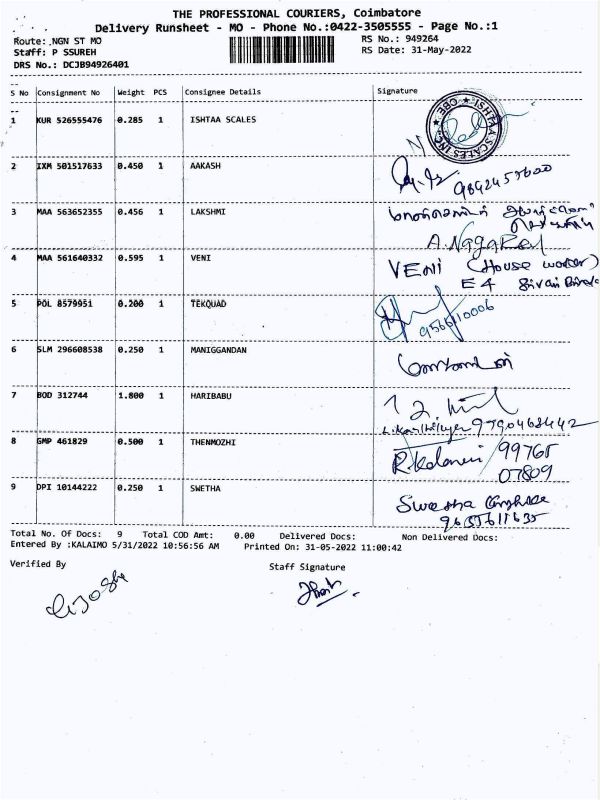 THE PROFESSIONAL COURIERS, Coimbatore
Delivery Runsheet - MO - Phone No.:0422-3505555 - Page No.:1
Route: NGN ST MO
RS No.: 949264
Staff: P SSUREH
RS Date: 31-May-2022
DRS No.: DCJB94926401
S No Consignment No Weight PCS Consignee Details Signature
1 KUR 526555476 0.285 1 ISHTAA SCALES
ISHTAA SCALES INC.
2 IXM 501517633 0.450 1 AAKASH
3 MAA 563652355 0.456 1 LAKSHMI
A. Nagaraj
4 MAA 561640332 0.595 1 VENI VENI (House worker)
E4
5 POL 8579951 0.200 1 TEKQUAD
9566110006
6 SLM 296608538 0.250 1 MANIGGANDAN
7 BOD 312744 1.800 1 HARIBABU
9790468442
8 GMP 461829 0.500 1 THENMOZHI 99765
07809
9 DPI 10144222 0.250 1 SWETHA
9655611635
Total No. Of Docs: 9 Total COD Amt: 0.00 Delivered Docs: Non Delivered Docs:
Entered By :KALAIMO 5/31/2022 10:56:56 AM Printed On: 31-05-2022 11:00:42
Verified By Staff Signature